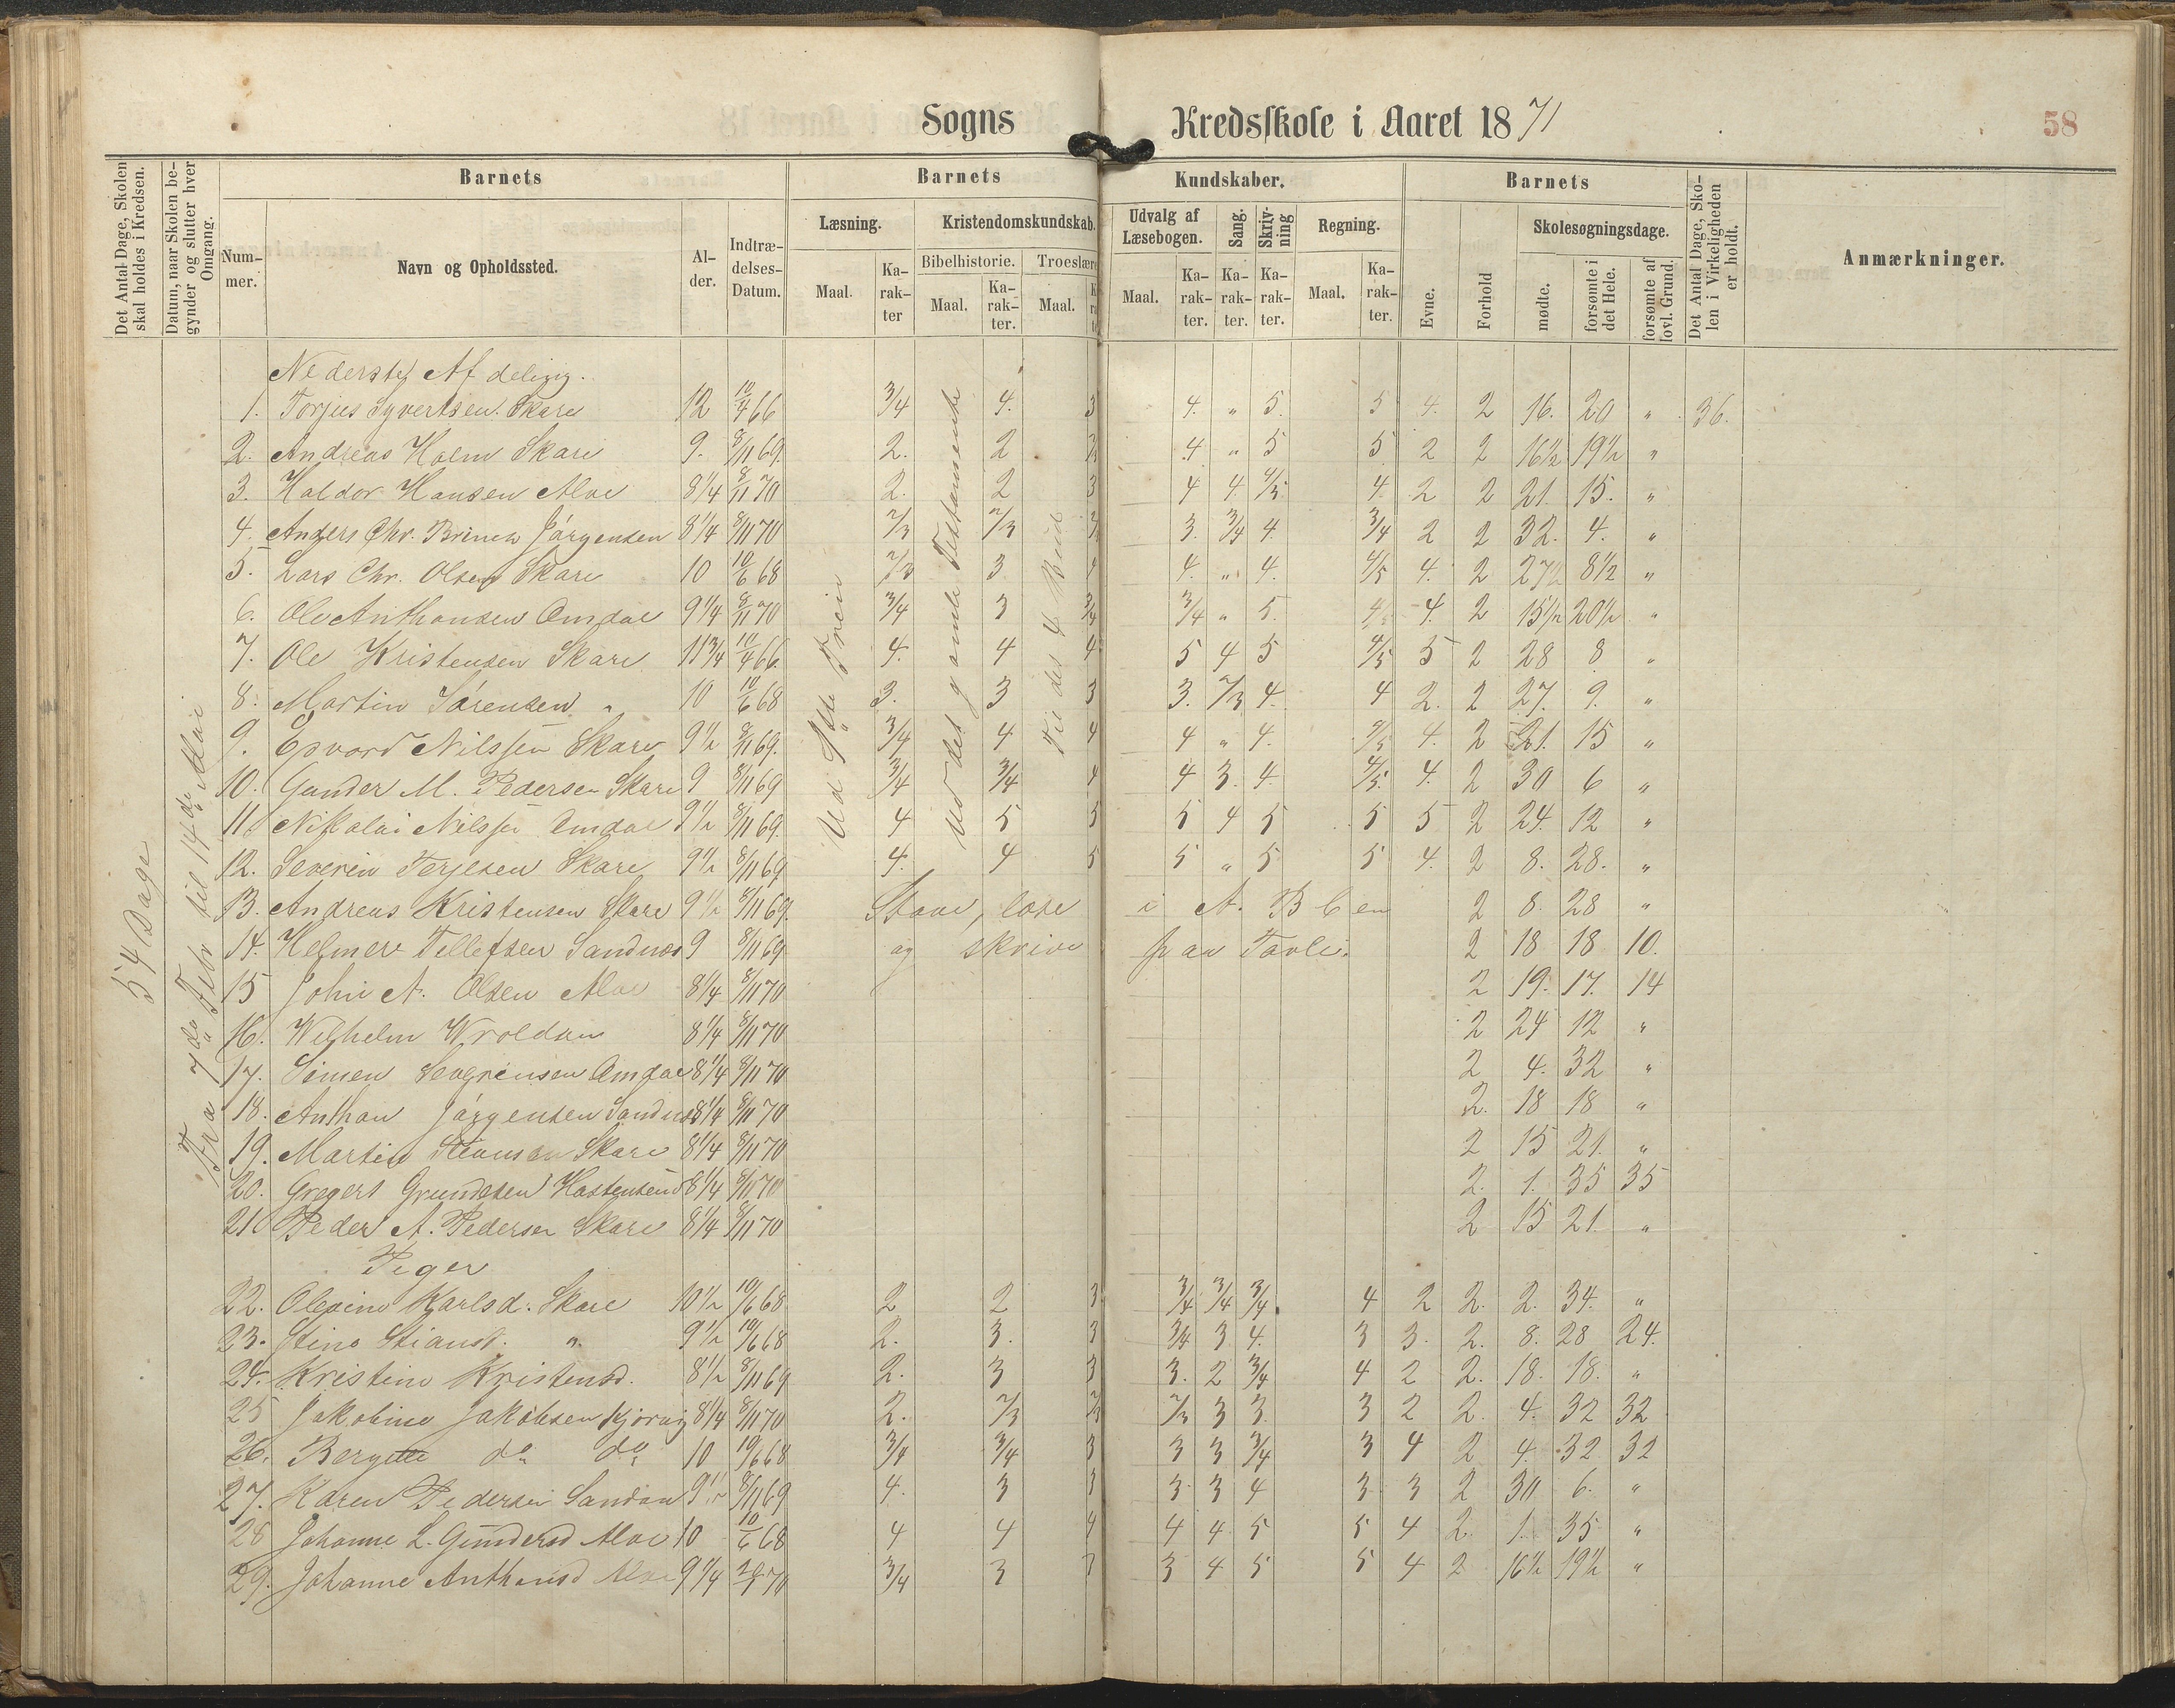 Sogns Kredsskole i Aaret 1871
58
Det Antal Dage, Skolen skal holdes i Kredsen.
Datum, naar Skolen begynder og slutter hver Omgang.
Barnets
Barnets Kundskaber.
Barnets
Det Antal Dage, Skolen i Virkeligheden er holdt.
Anmærkninger.
Nummer.
Navn og Opholdssted.
Alder.
Indtrædelses-Datum.
Læsning.
Kristendomskundskab.
Udvalg af Læsebogen.
Sang.
Skrivning
Regning.
Evne.
Forhold
Skolesøgningsdage.
Maal.
Karakter
Bibelhistorie.
Troeslære
Maal.
Karakter.
Maal.
Maal.
Karakter.
Karakter.
Karakter.
Maal.
Karakter.
mødte.
forsømte i det Hele.
forsømte af lovl. Grund.
54 Dage
Fra 7de Febr til 14de Mai
Ud det gamle Testamente
Til det 4 Bud
Nederste Afdeling.
1. Torjus Syvertsen. Skare 12 10/4 66 3/4 4. 3 4. " 5. 5 4. 2 16. 20 " 36.
2. Andreas Holm Skare 9. 8/11 69. 2. 2 4 " 5 5 2 2 16½ 19½ "
3. Haldor Hansen Aloe 8¼ 8/11 70 2. 2 3 4 4. 4/5 4. 2 2 21. 15. "
4. Anders Chr. Jørgensen 8¼ 8/11 70 2/3 2/3 3. 3/4 4. 3/4 2 2 32. 4. "
5. Lars Chr. Olsen Skare 10 10/6 68 2/3 3 4 4. " 4. 4/5 4. 2 27½ 8½ "
6. Ole Anthonsen Omdal 9¼ 8/11 70 3/4 3 3/4 3/4 " 5. 4. 2 15½ 20½ "
7. Ole Kristensen Skare 11¾ 10/4 66. 4. 4 4 5 4 5 4/5 5 2 28 8 "
8. Martin Sørensen " 10 10/6 68 3. 3 3 3. 2/3 4. 4 2. 2 27. 9. "
9. Nilssen Skare 9½ 8/11 69. 3/4 4 4 4 " 4. 4. 2 21. 15 "
10. Gunder M. Pedersen Skare 9 8/11 69 3/4 3/4 4 4 3. 4. 4/5 4. 2 30 6 "
11. Nikolai Nilssen Omdal 9½ 8/11 69. 4 5 5 5 4 5 5 5 2 24. 12 "
12. Severin Terjesen Skare 9½ 8/11 69 4. 4 5 5 " 5 5 4. 2 8. 28. "
13. Andreas Kristensen Skare 9½ 8/11 69. Stave, læse i A. B C en 2 8. 28 "
14. Helmer Tellefsen Sandnæs 9 8/11 69 og skrive paa Tavle. 2 18 18 10.
15 John A. Olsen Aloe 8¼ 8/11 70 2 19. 17. 14
16. Wilhelm Wroldsen 8¼ 8/11 70 2 24 12 "
17. Simen Omdal 8¼ 8/11 70 2 4. 32 "
18. Anthon Jørgensen Sandnæs 8¼ 8/11 70 2. 18 18 "
19. Martin Skare 8¼ 8/11 70 2 15 21. "
20. Gregert Grundesen 8¼ 8/11 70 2. 1. 35 35
21 Peder A. Pedersen Skare 8¼ 8/11 70 2 15 21. "
Piger
22. Olevine Karlsd. Skare 10½ 10/6 68 2 2 3 3/4 3/4 3/4. 4 2 2. 2. 34. "
23. Stine Stiansd. " 9½ 10/6 68 2. 3. 3 3/4 3 4. 3 3. 2. 8. 28 24.
24. Kristine Kristensd. 8½ 8/11 69 2. 3 3 3. 2 3/4 4 2 2. 18. 18. "
25 Jakobine Jakobsen 8¼ 8/11 70 2. 2/3 2/3 2/3 3 3. 3 2 2. 4. 32 32
26. Bergitte do do 10 10/6 68 3/4 3/4 3 3 3 3/4 3 4 2 4. 32 32
27. Karen Pedersen 9½ 8/11 69 4. 3 3 3 3 4 3 3 2 30 6. "
28 Johanne L. Gundersd Aloe 10 10/6 68 4 4 4 4 4 5 5 4 2. 1. 35 "
29. Johanne Anthonsd Aloe 9¼ 3/4 3 3 4 5 5 4 2 16½ 19½ "